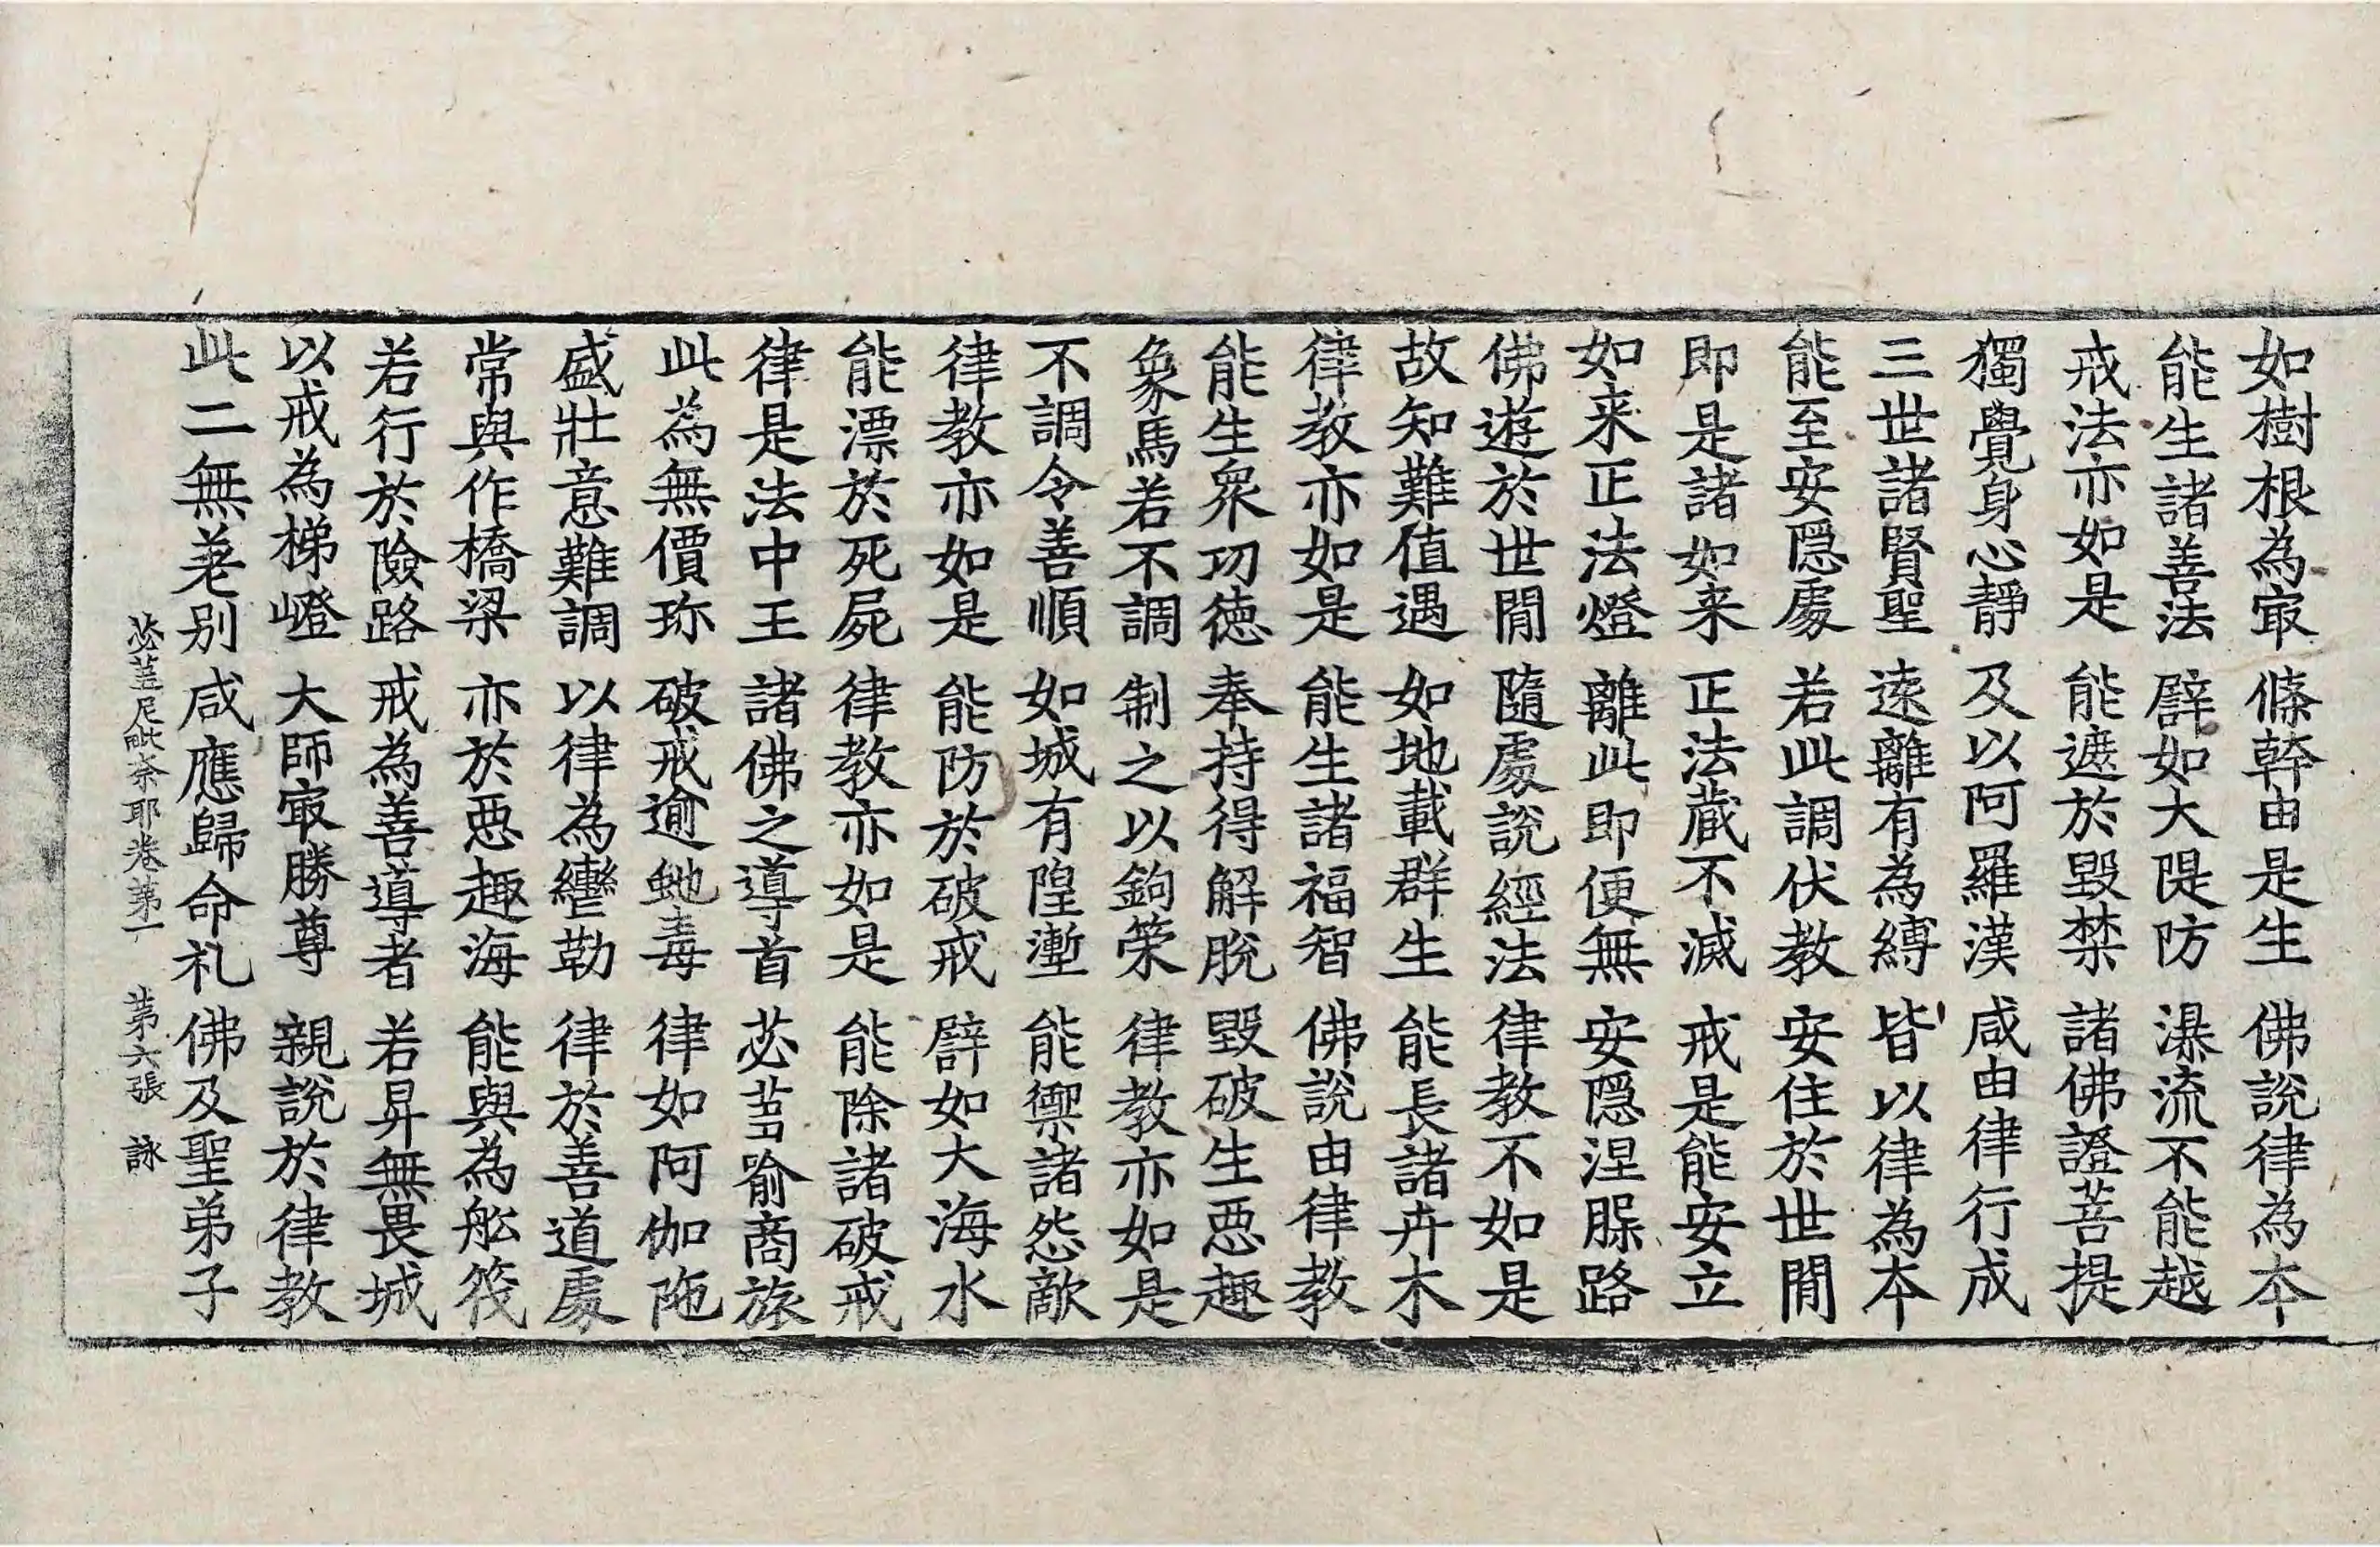 如樹根為㝡 條幹由是生 佛說律為本
能生諸善法 辟如大隄防 瀑流不能越
戒法亦如是 能遮於毀禁 諸佛證菩提
獨覺身心靜 及以阿羅漢 咸由律行成
三世諸賢聖 遠離有為縛 皆以律為本
能至安隱處 若此調伏教 安住於世間
即是諸如来 正法蔵不滅 戒是能安立
如来正法燈 離此即便無 安隱涅脲路
佛遊於世間 隨處說經法 律教不如是
故知難值遇 如地載群生 能長諸卉木
律教亦如是 能生諸福智 佛說由律教
能生衆功徳 奉持得解脫 毀破生惡趣
象馬若不調 制之以鉤策 律教亦如是
不調令善順 如城有隍壍 能禦諸怨敵
律教亦如是 能防於破戒 辟如大海水
能漂於死屍 律教亦如是 能除諸破戒
律是法中王 諸佛之導首 苾蒭喻商旅
此為無價珎 破戒逾虵毒 律如阿伽陁
盛壯意難調 以律為轡勒 律於善道處
常與作橋梁 亦於惡趣海 能與為舩筏
若行於險路 戒為善導者 若昇無畏城
以戒為梯嶝 大師㝡勝尊 親說於律教
此二無差別 咸應歸命礼 佛及聖弟子
苾蒭尼毗奈耶卷第一 第六張 詠